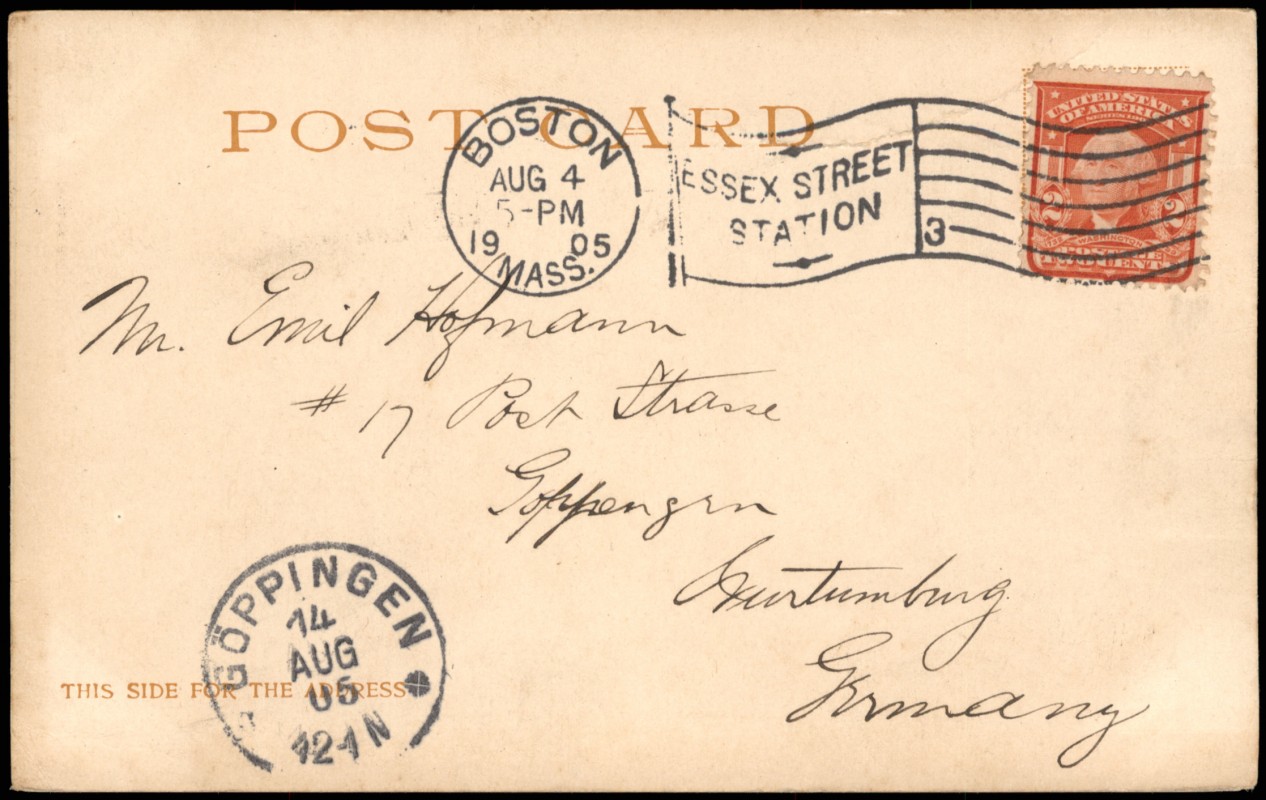 POST CARD
BOSTON
AUG 4
5-PM
19 05
MASS.
ESSEX STREET
STATION
3
UNITED STATES
OF AMERICA
SERIES 1902
2 2
1732 WASHINGTON
POSTAGE
TWO CENTS
Mr. Emil Hofmann
# 17 Post Strasse
Goppengen
Wurtumburg
Germany
GÖPPINGEN
14
AUG
05
12-1 N
THIS SIDE FOR THE ADDRESS